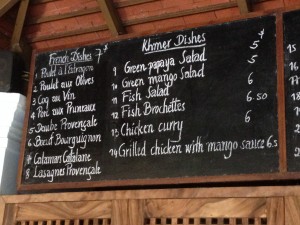 French Dishes 7 $
1 Poulet à l'Estragon
2 Poulet aux Olives
3 Coq au Vin
4 Porc aux Pruneaux
5 Daube Provençale
6 Bœuf Bourguignon
7 Calamar Catalane
8 Lasagnes Provençale
Khmer Dishes $
9 Green papaya Salad 5
10 Green mango Salad 5
11 Fish Salad 6
12 Fish Brochettes 6.50
13 Chicken curry 6
14 Grilled chicken with mango sauce 6.5